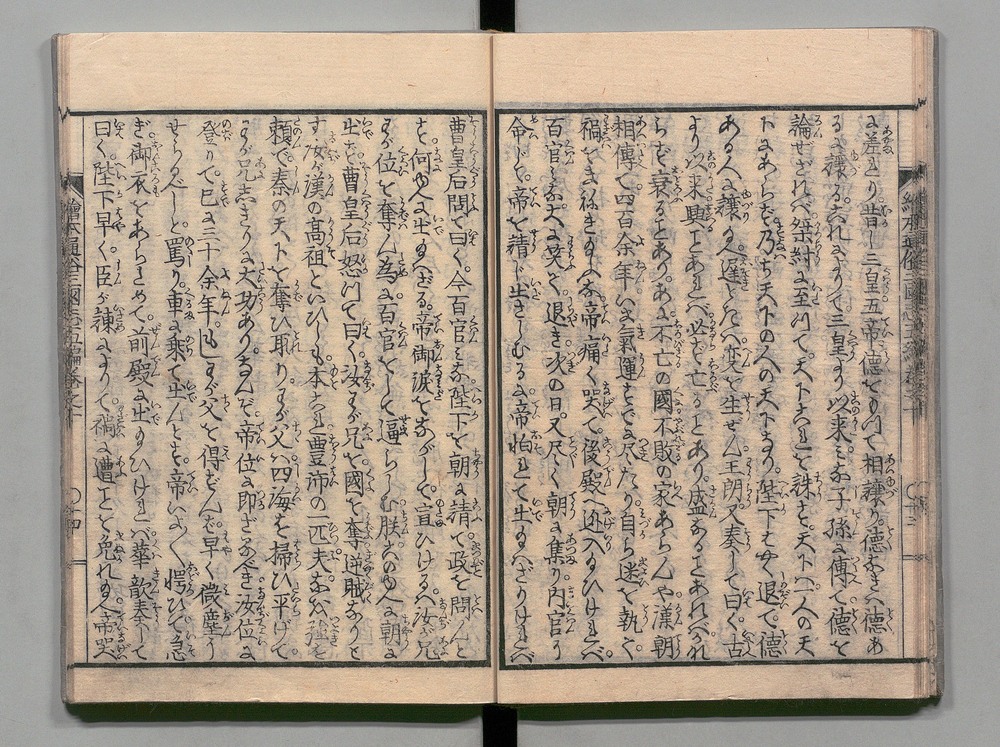 に差へり昔し三皇五帝徳をもつて相譲る徳なきハ徳あ
るに譲るこれによりて三皇より以来ミな子孫に傳て徳を
論ぜざれバ桀紂に至つて天下これを誅す天下ハ一人の天
下にあらず乃ち天下の人の天下なり陛下はやく退て徳
ある人に譲り給へ遅しくバ変を生ぜん王朗又奏して曰く古
より以来興ことあれバ必ず亡ることあり盛なることあれバかな
らず衰ることありあに不亡の國不敗の家あらんや漢朝
相傳て四百余年いま氣運すでに尽たり自ら迷を執て
禍をまねき給ふな帝痛く哭て後殿へ迯入給ひけれバ
百官ミな大に笑て退き次の日又尽く朝に集り内官
命じて帝を請じ出さしむるに帝怕れて出給ハざりけれバ
曹皇后問て曰く今百官ミな陛下を朝に請て政を問んと
す何ゆへに出給ハざる帝御涙をながして宣ひけるハ汝が兄
わが位を奪ん為に百官をして逼らしむ朕このゆへに朝に
出ず曹皇后怒つて曰く汝わが兄を國を奪逆賊なりと
す汝が漢の高祖といひしも本これ豊沛の一匹夫なるが
頼で秦の天下を奪ひ取りわが父ハ四海を掃ひ平げて
わが兄しきりに大功ありなんぞ帝位に即ざるべき汝位に
登りて已に三十余年もしわが父を得ずんバ早く微塵
せらるべしと罵り車に乗て出んとす帝いよいよ愕ひて急
ぎ御衣をあらためて前殿に出給ひけれバ華歆奏して
曰く陛下早く臣が諫によりて禍に遭ことを免れ給へ帝哭
繪本通俗三國志五編巻之十
十三
繪本通俗三國志五編巻之十
十四